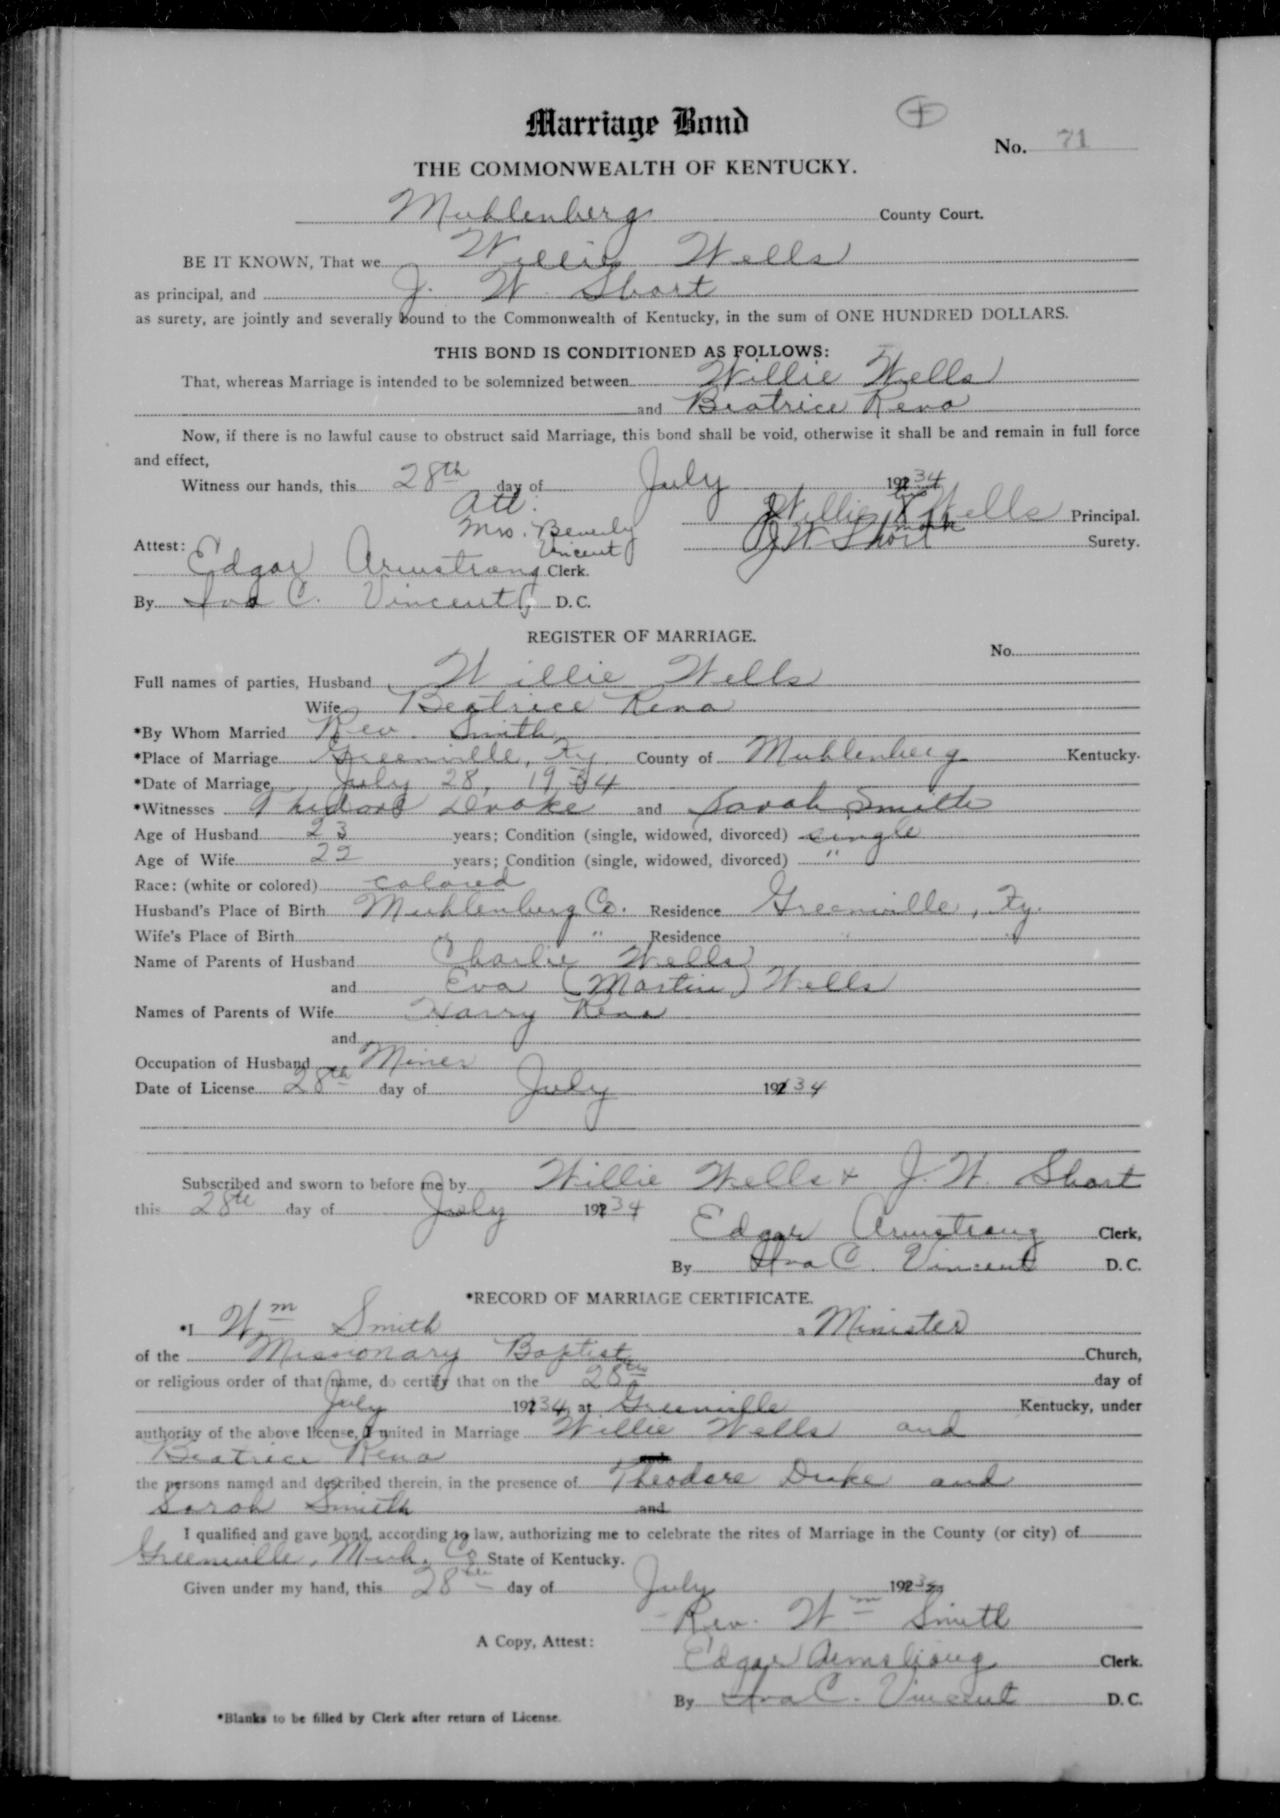 Marriage Bond
+
No. 71
THE COMMONWEALTH OF KENTUCKY.
Muhlenberg County Court.
BE IT KNOWN, That we Willie Wells
as principal, and J. W. Short
as surety, are jointly and severally bound to the Commonwealth of Kentucky, in the sum of ONE HUNDRED DOLLARS.
THIS BOND IS CONDITIONED AS FOLLOWS:
That, whereas Marriage is intended to be solemnized between Willie Wells
and Beatrice Reno
Now, if there is no lawful cause to obstruct said Marriage, this bond shall be void, otherwise it shall be and remain in full force
and effect,
Witness our hands, this 28th day of July 1934
Att: his
Willie X Wells Principal.
Mrs. Beverly mark
Attest: Vincent J W Short Surety.
Edgar Armstrong Clerk.
By Iva C. Vincent D. C.
REGISTER OF MARRIAGE.
No.
Full names of parties, Husband Willie Wells
Wife Beatrice Reno
*By Whom Married Rev. Smith
*Place of Marriage Greenville, Ky. County of Muhlenberg Kentucky.
*Date of Marriage July 28, 1934
*Witnesses Theodore Drake and Sarah Smith
Age of Husband 23 years; Condition (single, widowed, divorced) single
Age of Wife 22 years; Condition (single, widowed, divorced) "
Race: (white or colored) colored
Husband's Place of Birth Muhlenberg Co. Residence Greenville, Ky.
Wife's Place of Birth " Residence " "
Name of Parents of Husband Charlie Wells
and Eva (Martin) Wells
Names of Parents of Wife Harry Reno
and
Occupation of Husband Miner
Date of License 28th day of July 1934
Subscribed and sworn to before me by Willie Wells & J. W. Short
this 28th day of July 1934
Edgar Armstrong Clerk,
By Iva C. Vincent D. C.
*RECORD OF MARRIAGE CERTIFICATE.
*I Wm Smith a Minister
of the Missionary Baptist Church,
or religious order of that name, do certify that on the 28th day of
July 1934, at Greenville Kentucky, under
authority of the above license, I united in Marriage Willie Wells and
Beatrice Reno and
the persons named and described therein, in the presence of Theodore Drake and
Sarah Smith and
I qualified and gave bond, according to law, authorizing me to celebrate the rites of Marriage in the County (or city) of
Greenville, Muh. Co State of Kentucky.
Given under my hand, this 28th day of July 1934
Rev. Wm Smith
A Copy, Attest:
Edgar Armstrong Clerk.
By Iva C. Vincent D. C.
*Blanks to be filled by Clerk after return of License.